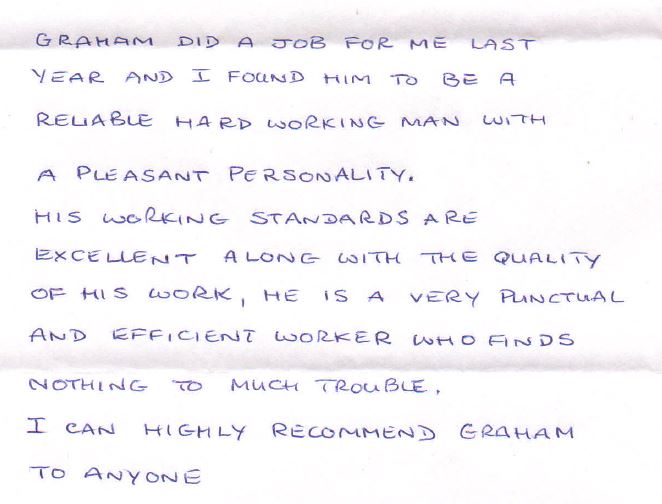 GRAHAM DID A JOB FOR ME LAST
YEAR AND I FOUND HIM TO BE A
RELIABLE HARD WORKING MAN WITH
A PLEASANT PERSONALITY.
HIS WORKING STANDARDS ARE
EXCELLENT ALONG WITH THE QUALITY
OF HIS WORK, HE IS A VERY PUNCTUAL
AND EFFICIENT WORKER WHO FINDS
NOTHING TO MUCH TROUBLE.
I CAN HIGHLY RECOMMEND GRAHAM
TO ANYONE